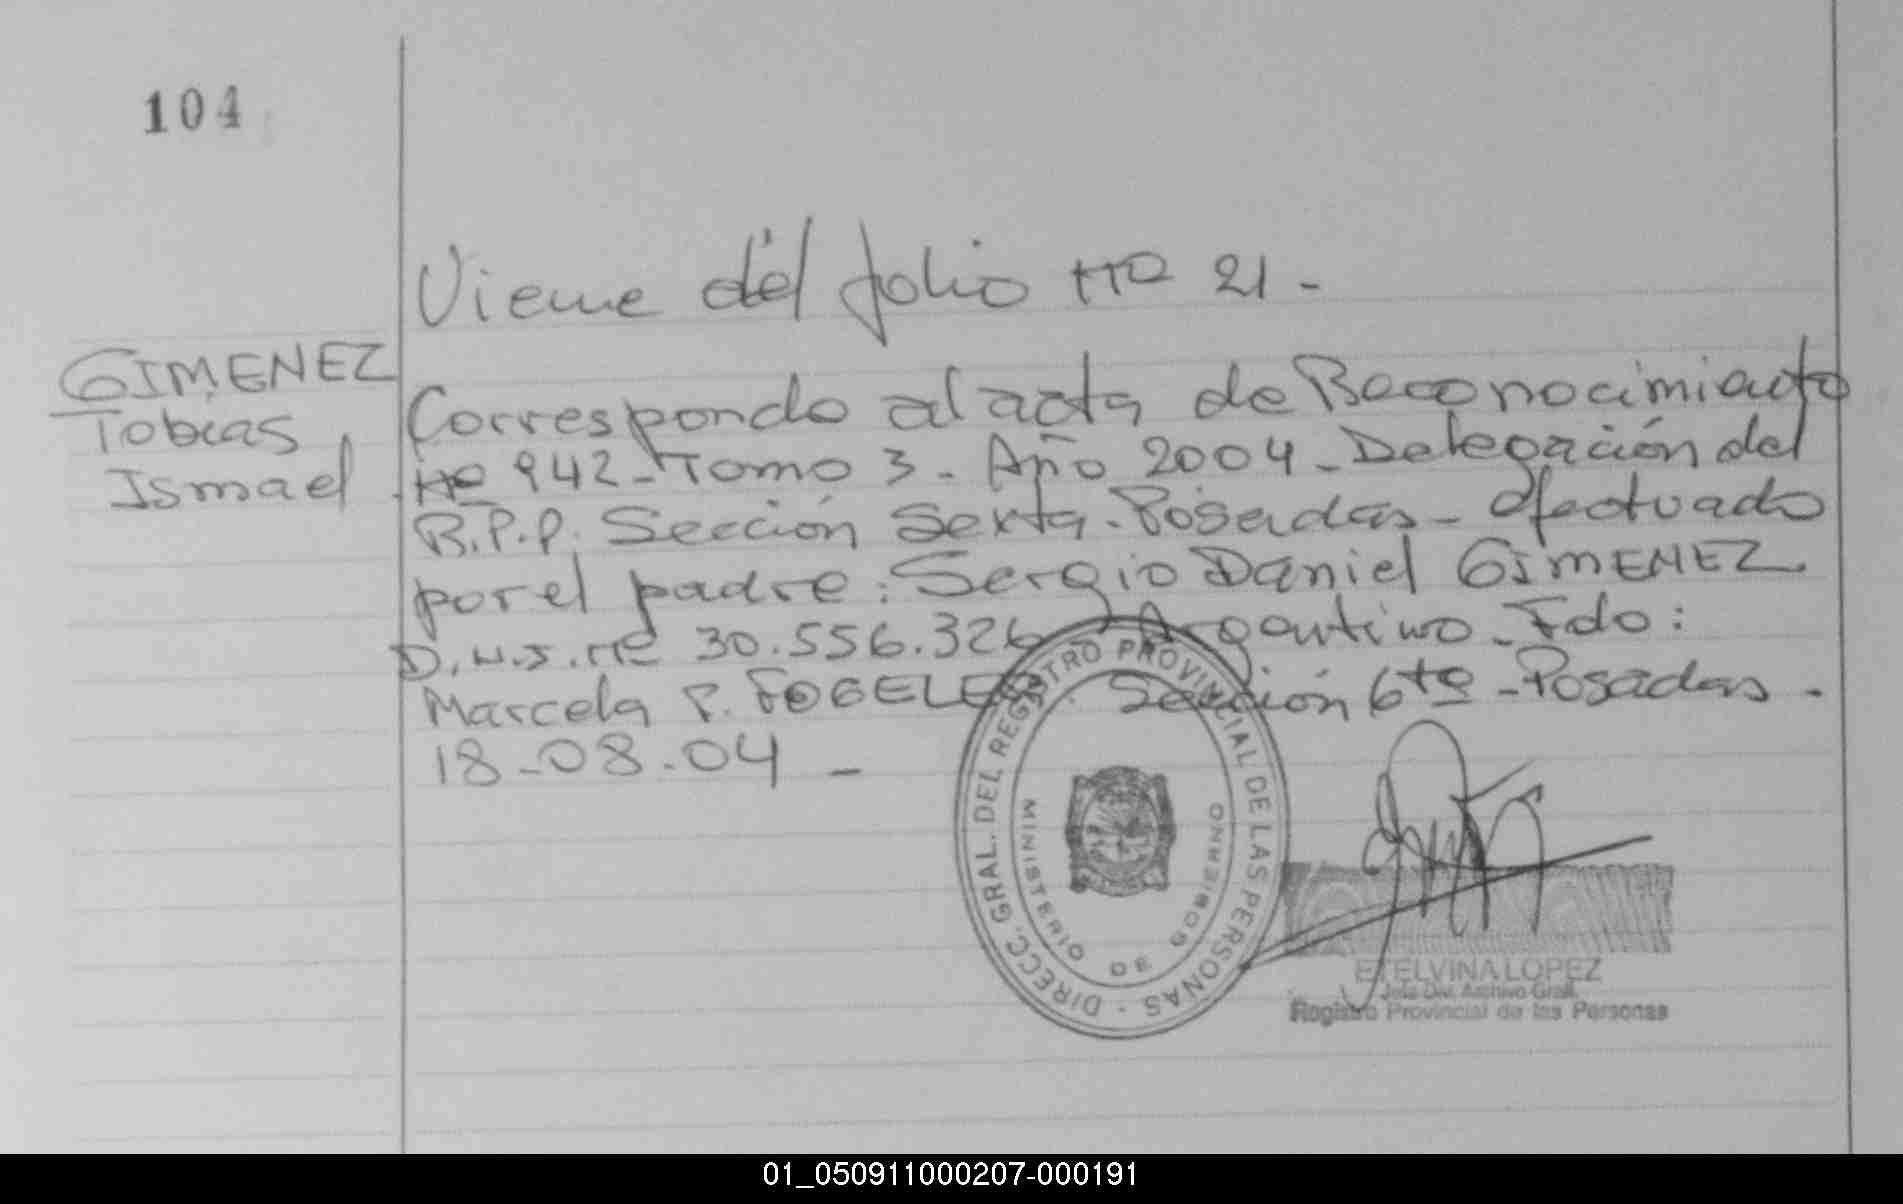 104
Viene del folio Nº 21 -
GIMENEZ
Tobias
Ismael
Corresponde al acta de Reconocimiento
Nº 942 - Tomo 3 - Año 2004 - Delegación del
R.P.P. Sección Sexta - Posadas - efectuado
por el padre: Sergio Daniel GIMENEZ
D.N.I. Nº 30.556.326 Argentino - Fdo:
Marcela P. FOGELER Sección 6ta - Posadas -
18-08-04 -
DIRECC. GRAL. DEL REGISTRO PROVINCIAL DE LAS PERSONAS -
MINISTERIO DE GOBIERNO
ETELVINA LOPEZ
Jefa Div. Archivo Gral.
Registro Provincial de las Personas
01_050911000207-000191